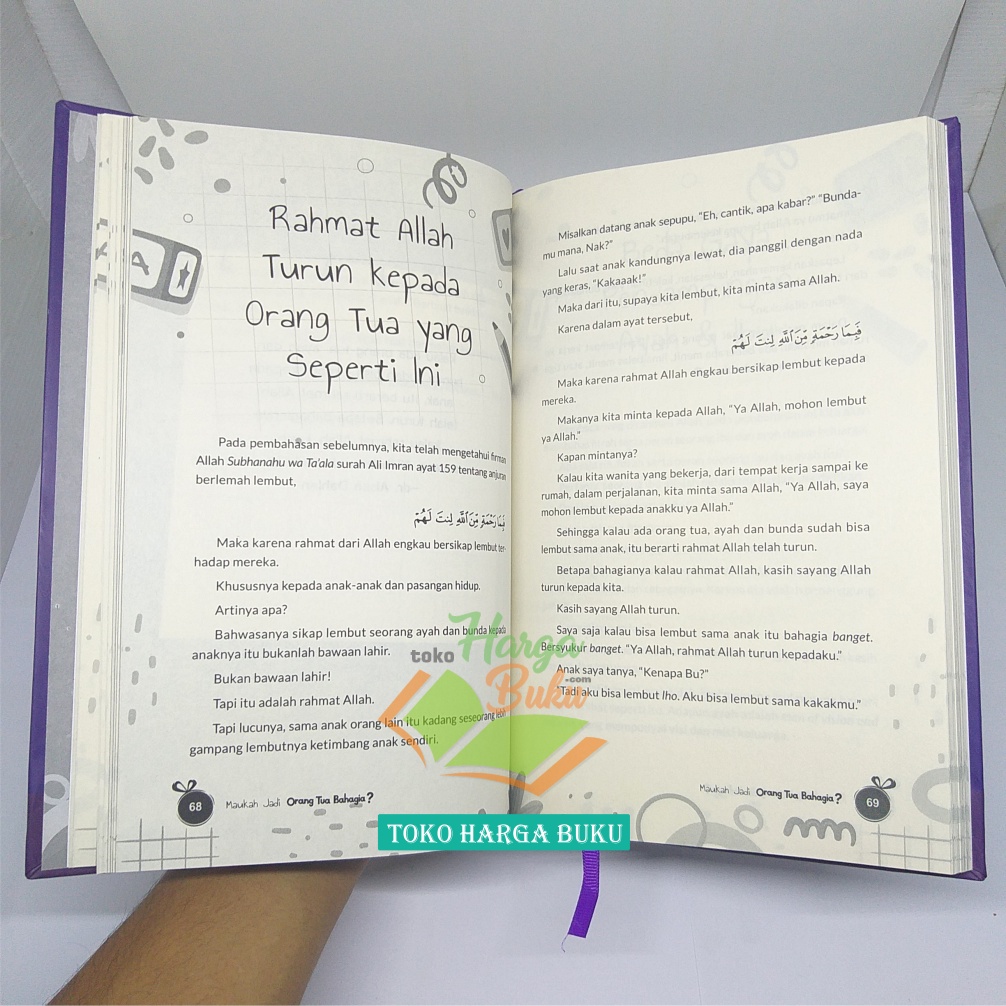 Rahmat Allah
Turun kepada
Orang Tua yang
Seperti Ini
Pada pembahasan sebelumnya, kita telah mengetahui firman
Allah Subhanahu wa Ta'ala surah Ali Imran ayat 159 tentang anjuran
berlemah lembut,
فَبِمَا رَحْمَةٍ مِّنَ ٱللَّهِ لِنتَ لَهُمْ
Maka karena rahmat dari Allah engkau bersikap lembut ter-
hadap mereka.
Khususnya kepada anak-anak dan pasangan hidup.
Artinya apa?
Bahwasanya sikap lembut seorang ayah dan bunda kepada
anaknya itu bukanlah bawaan lahir.
Bukan bawaan lahir!
Tapi itu adalah rahmat Allah.
Tapi lucunya, sama anak orang lain itu kadang seseorang lebih
gampang lembutnya ketimbang anak sendiri.
68
Maukah Jadi Orang Tua Bahagia?
Misalkan datang anak sepupu, "Eh, cantik, apa kabar?" "Bunda-
mu mana, Nak?"
Lalu saat anak kandungnya lewat, dia panggil dengan nada
yang keras, "Kakaaak!"
Maka dari itu, supaya kita lembut, kita minta sama Allah.
Karena dalam ayat tersebut,
فَبِمَا رَحْمَةٍ مِّنَ ٱللَّهِ لِنتَ لَهُمْ
Maka karena rahmat Allah engkau bersikap lembut kepada
mereka.
Makanya kita minta kepada Allah, "Ya Allah, mohon lembut
ya Allah."
Kapan mintanya?
Kalau kita wanita yang bekerja, dari tempat kerja sampai ke
rumah, dalam perjalanan, kita minta sama Allah, "Ya Allah, saya
mohon lembut kepada anakku ya Allah."
Sehingga kalau ada orang tua, ayah dan bunda sudah bisa
lembut sama anak, itu berarti rahmat Allah telah turun.
Betapa bahagianya kalau rahmat Allah, kasih sayang Allah
turun kepada kita.
Kasih sayang Allah turun.
Saya saja kalau bisa lembut sama anak itu bahagia banget.
Bersyukur banget. "Ya Allah, rahmat Allah turun kepadaku."
Anak saya tanya, "Kenapa Bu?"
"Tadi aku bisa lembut lho. Aku bisa lembut sama kakakmu."
Maukah Jadi Orang Tua Bahagia?
69
toko Harga
Buku .com
TOKO HARGA BUKU